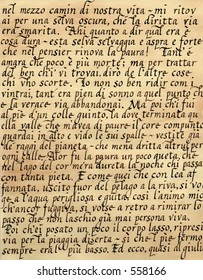 nel mezzo camin di nostra vita - mi ritov
ai per una selva oscura, che la diritta via
era smarita. Ahi quanto a dir qual era è
cosa dura - esta selva selvaggia e aspra e forte
che nel pensier rinova la paura! Tant'è
amara che poco è più morte: ma per trattar
del ben ch'i' vi trovai, dirò de l'altre cose
chi v'ho scorte. Io non so ben ridir com'i
v'intrai, tant era pien di sonno a quel punto ch
e la verace via abbandonai. Ma poi ch'i fui
al piè d'un colle giunto, là dove terminata qu
ella valle che m'avea di paure il core compunto
guardai in alto e vidi le sue spalle - vestite già
de raggi del pianeta - che mena dritta altrui per
ogni calle. Alor fu la paura un poco queta, che
nel lago del cor mera durata la notte chi passa
i con tanta pieta. E come quei che con lea af
fannata, uscito fuor del pelago a la riva, si vo
lge a l'aqua perigliosa e guata, così l'animo mio
ch'ancor fuggiva, si volse a retro a rimirar lo
passo che non laschiò già mai persona viva.
Poi ch'ei posato un poco il corpo lasso, ripresi
via per la piaggia diserta - sì che 'l piè fermo
sempre era 'l più basso. Ed ecco, quasi
shutterstock.com · 558166